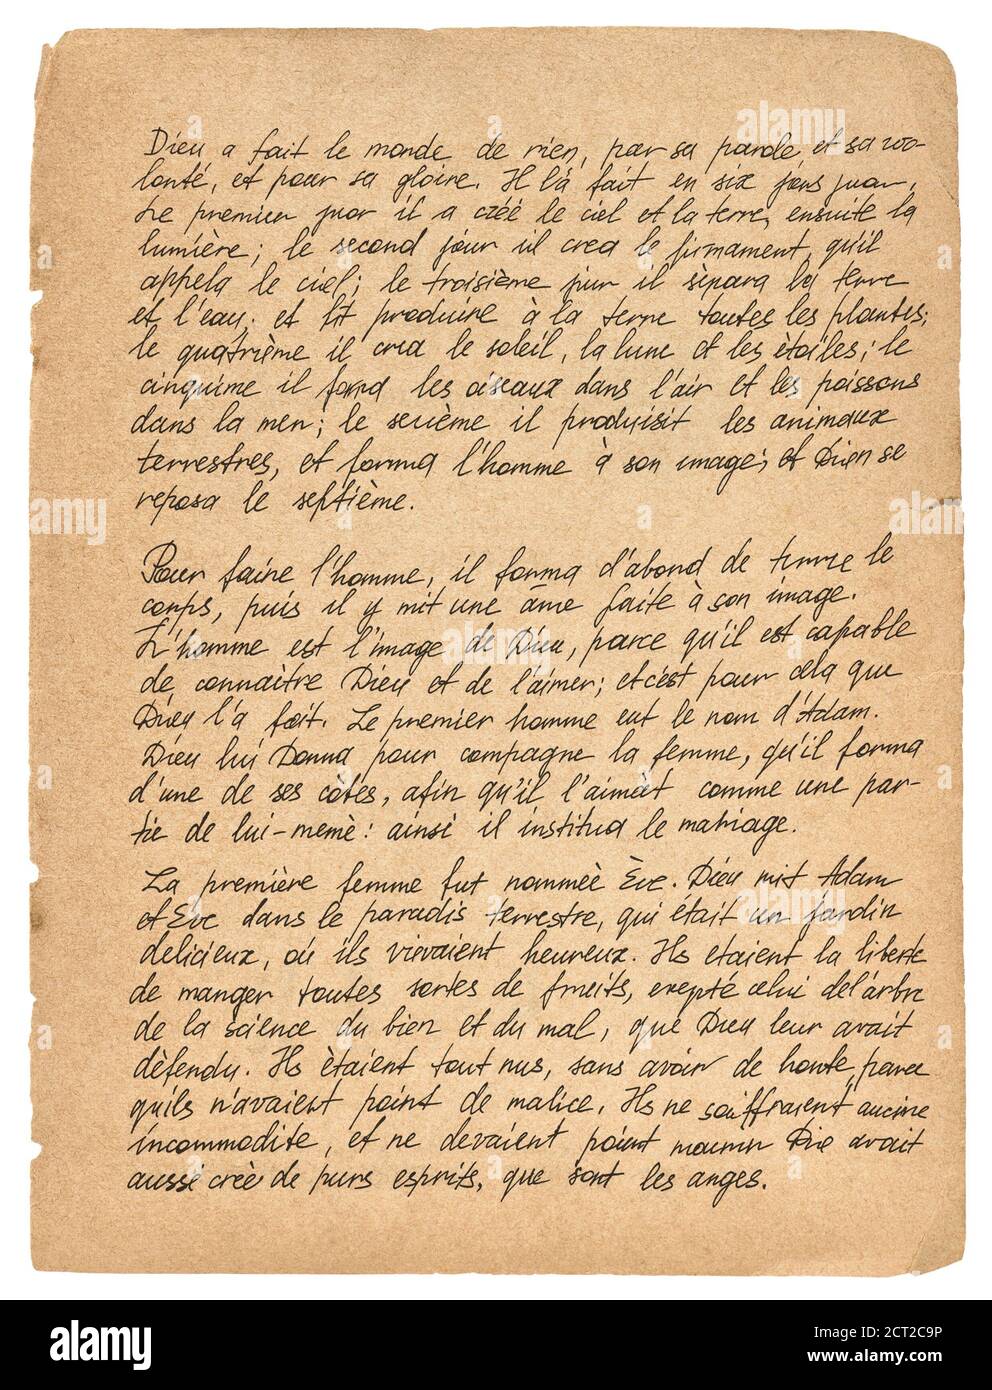 Dieu a fait le monde de rien, par sa parole, et sa vo-
lonté, et pour sa gloire. Il l'a fait en six jors juor,
Le premier juor il a créé le ciel et la terre, ensuite la
lumière; le second jour il crea le firmament, qu'il
appela le ciel; le troisième jiur il sèpara la terre
et l'eau, et fit produire à la terre toutes les plantes;
le quatrième il crea le soleil, la lune et les ètoiles; le
cinquime il forma les oiseaux dans l'air et les poissons
dans la mer; le sexième il produisit les animaux
terrestres, et forma l'homme à son image; et Dieu se
reposa le septième.
Pour faire l'homme, il forma d'abord de terre le
corps, puis il y mit une âme faite à son image.
L'homme est l'image de Dieu, parce qu'il est capable
de connaitre Dieu et de l'aimer; et c'est pour cela que
Dieu l'a fait. Le premier homme eut le nom d'Adam.
Dieu lui Donna pour compagne la femme, qu'il forma
d'une de ses côtes, afin qu'il l'aimàt comme une par-
tie de lui-memè: ainsi il institua le mariage.
La première femme fut nommeè Ève. Dieu mit Adam
et Eve dans le paradis terrestre, qui était un jardin
delicieux, où ils vievaient heureux. Ils etaient la liberte
de manger toutes sortes de fruits, exepté celui de l'arbre
de la science du bien et du mal, que Dieu leur avait
dèfendu. Ils ètaient tout nus, sans avoir de honte, parce
qu'ils n'avaient point de malice. Ils ne souffraient aucune
incommodite, et ne devaient point mourir Die avait
aussi creè de purs esprits, que sont les anges.
alamy
Image ID: 2CT2C9P
www.alamy.com